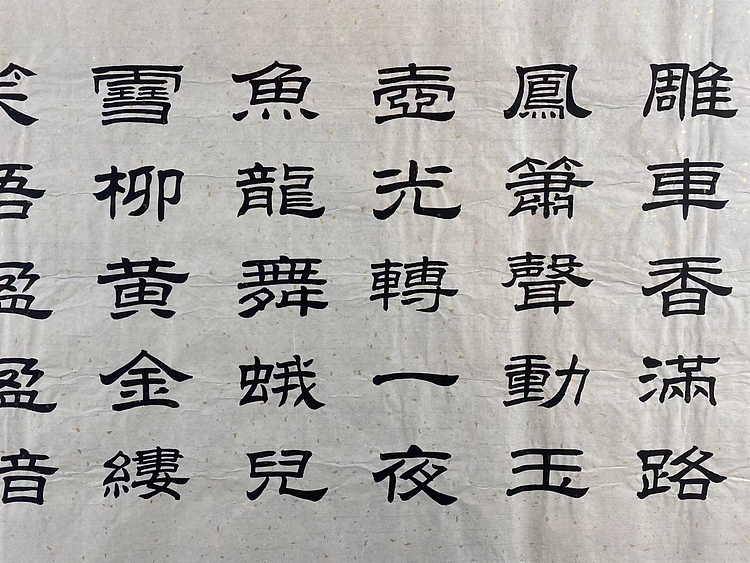 雕車香滿路
鳳簫聲動玉
壺光轉一夜
魚龍舞蛾兒
雪柳黄金縷
笑盈盈